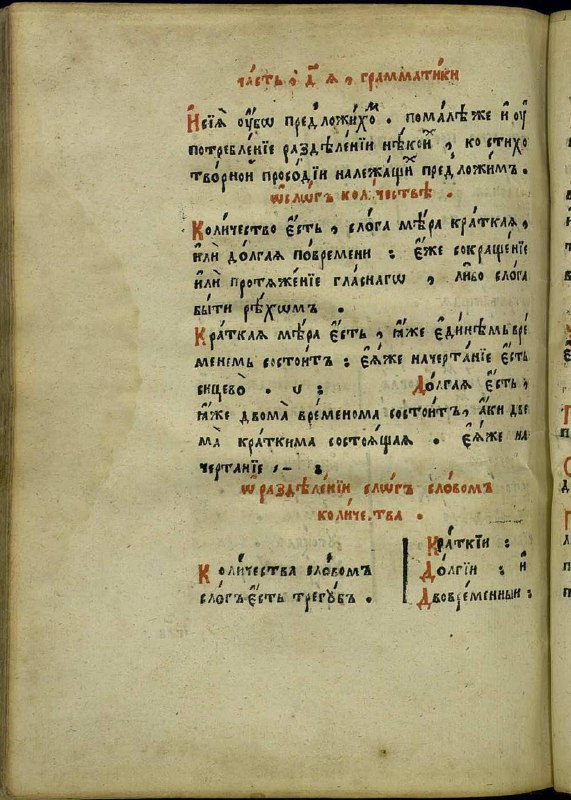 ча́сть, д҃ ѧ, грамматі́ки
И҆ сїѧ̀ ᲂу҆́бѡ предложи́хоⷨ . пома́лѣ же и҆ ᲂу҆
потребле́нїе раздѣле́нїи нѣ́коиⷯ , ко стихо
тво́рной просѡ́дїи належа́щиⷯ предло́жимъ .
Ѡ҆ слѡ́гъ коли́чествѣ .
Коли́чество є҆́сть , сло́га мѣ́ра кра́ткая ,
и҆лѝ до́лгая по вре́мени : є҆́же сокраще́нїе
и҆лѝ протѧже́нїе гла́снагѡ , ли́бо сло́га
бы́ти ре́хомъ .
Кра́ткая мѣ́ра є҆́сть , ꙗ҆́же є҆ди́нѣмъ вре́
менемъ состои́тъ : є҆ѧ́же начерта́нїе є҆́сть
сицево̀ . ᴗ : До́лгая є҆́сть ,
ꙗ҆́же двома̀ вре́менома состои́тъ , а҆́ки две
ма̀ кра́ткима состоѧ́щая . є҆ѧ́же на
черта́нїе , – :
Ѡ҆ раздѣле́нїи слѡ́гъ сло́вомъ
коли́чества .
Коли́чества сло́вомъ
сло́гъ є҆́сть трегу́бъ .
Кра́ткїи :
До́лгїи : и҆
Двовре́менныи :